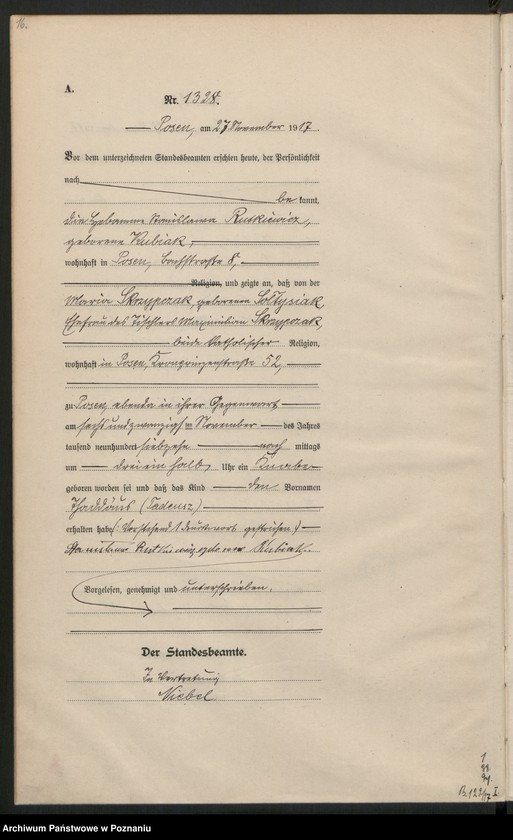 16.
A.
Nr. 1328.
Posen, am 27 November 1917.
Vor dem unterzeichneten Standesbeamten erschien heute, der Persönlichkeit
nach
be kannt,
die Hebamme Stanislawa Rutkiewicz,
geborene Kubiak,
wohnhaft in Posen, Bachstraße 8,
Religion, und zeigte an, daß von der
Maria Skrzypczak, geborenen Sołtysiak,
Ehefrau des Tischlers Maximilian Skrzypczak,
beide katholischer Religion,
wohnhaft in Posen, Kronprinzenstraße 52,
zu Posen, ebenda in ihrer Gegenwart
am sechsundzwanzigsten November des Jahres
tausend neunhundert siebzehn nach mittags
um drei ein halb Uhr ein Knabe
geboren worden sei und daß das Kind den Vornamen
Thaddäus (Tadeusz)
erhalten habe. Vorstehend 1 Druckwort gestrichen.
Stanisława Rutkiewicz Kubiak.
Vorgelesen, genehmigt und unterschrieben.
Der Standesbeamte.
In Vertretung
Niebel
Archiwum Państwowe w Poznaniu